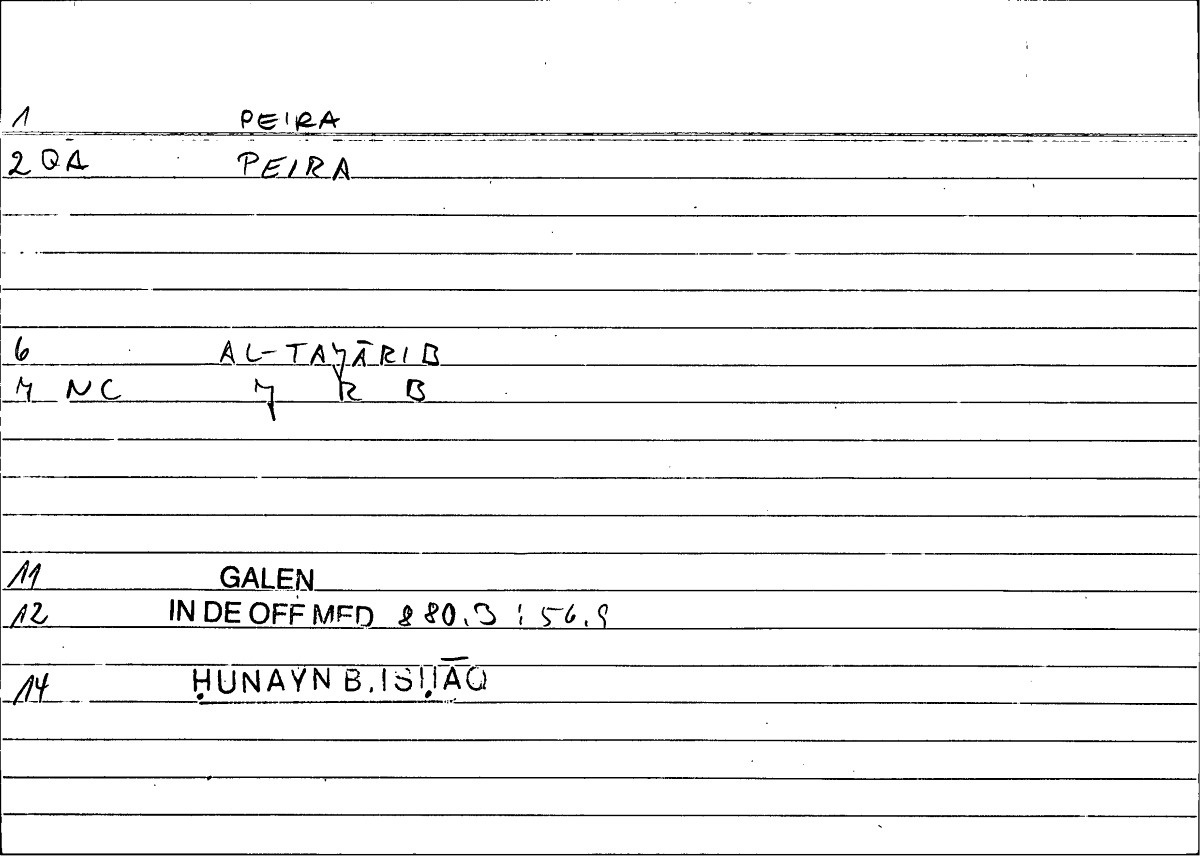 1 PEIRA
2 QA PEIRA
6 AL-TAJĀRIB
7 NC J R B
11 GALEN
12 IN DE OFF MED 880.3 : 56.9
14 ḤUNAYN B. ISḤĀQ